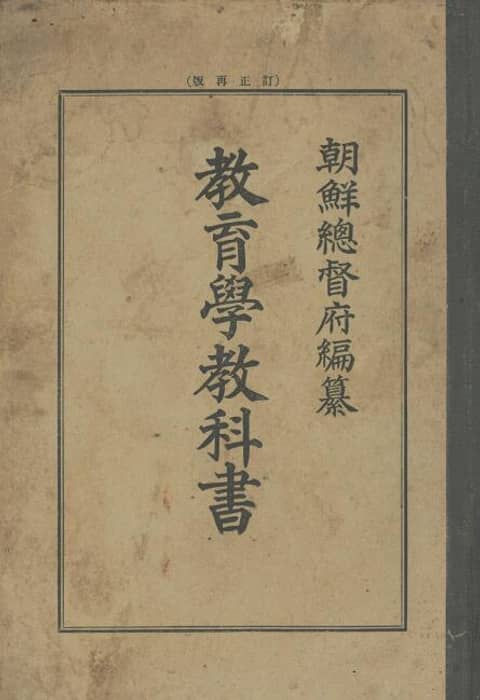 (訂正再版)
朝鮮總督府編纂
教育學教科書